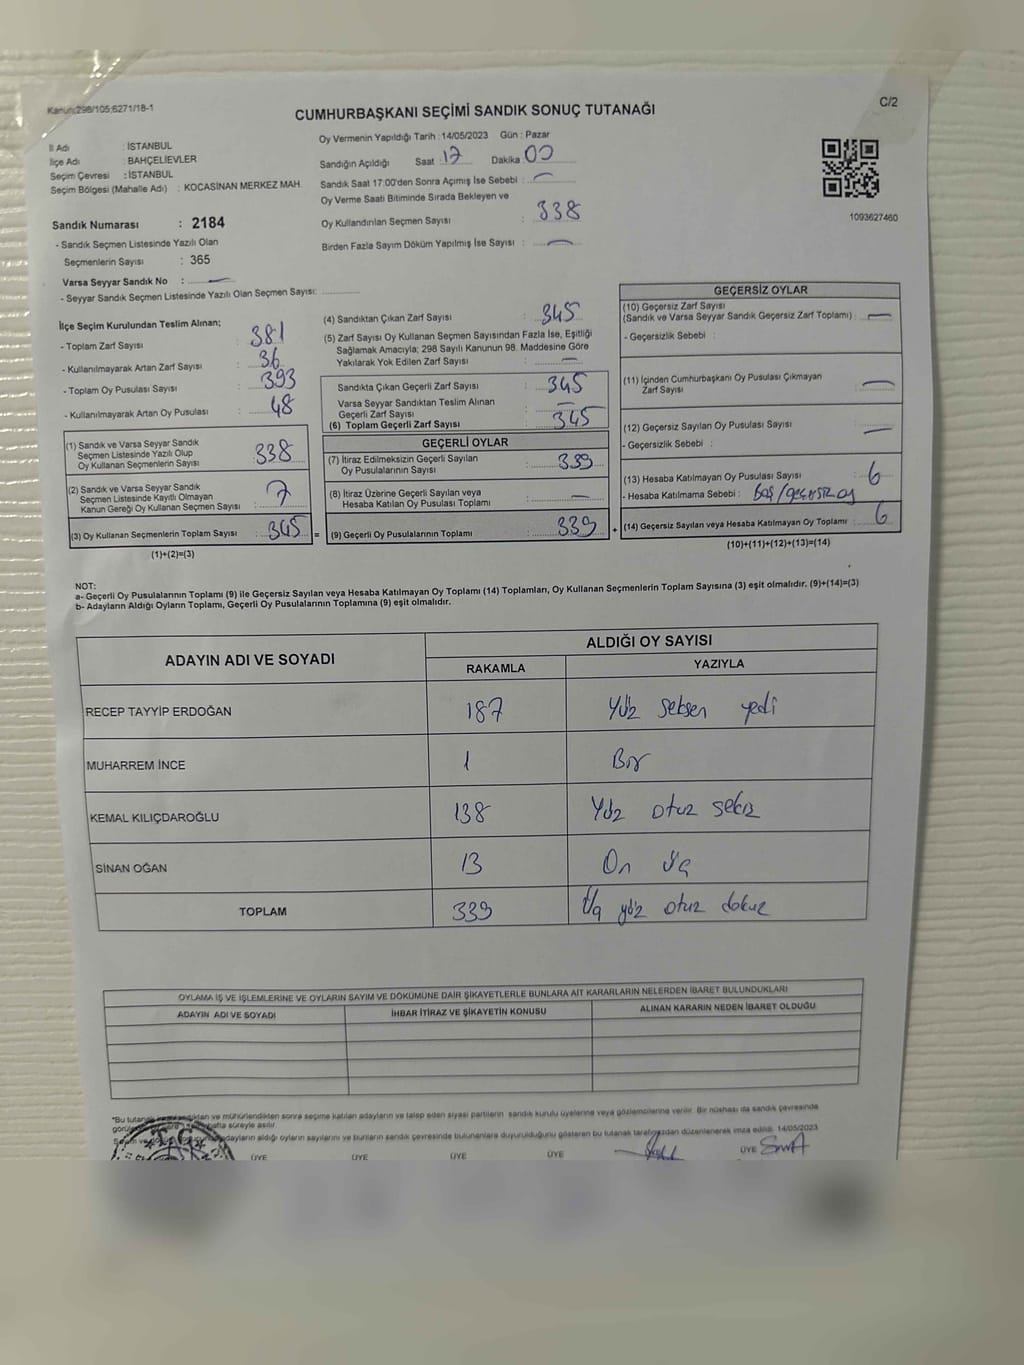 Kanun:298/105;6271/18-1
C/2
CUMHURBAŞKANI SEÇİMİ SANDIK SONUÇ TUTANAĞI
İl Adı : İSTANBUL
İlçe Adı : BAHÇELİEVLER
Seçim Çevresi : İSTANBUL
Seçim Bölgesi (Mahalle Adı) : KOCASİNAN MERKEZ MAH.
Sandık Numarası : 2184
- Sandık Seçmen Listesinde Yazılı Olan
Seçmenlerin Sayısı : 365
Varsa Seyyar Sandık No : —
- Seyyar Sandık Seçmen Listesinde Yazılı Olan Seçmen Sayısı:
Oy Vermenin Yapıldığı Tarih : 14/05/2023 Gün : Pazar
Sandığın Açıldığı Saat : 17 Dakika 00
Sandık Saat 17:00'den Sonra Açımış İse Sebebi : —
Oy Verme Saati Bitiminde Sırada Bekleyen ve
Oy Kullandırılan Seçmen Sayısı : 338
Birden Fazla Sayım Döküm Yapılmış İse Sayısı : —
1093627460
İlçe Seçim Kurulundan Teslim Alınan;
- Toplam Zarf Sayısı : 381
- Kullanılmayarak Artan Zarf Sayısı : 36
- Toplam Oy Pusulası Sayısı : 393
- Kullanılmayarak Artan Oy Pusulası : 48
(1) Sandık ve Varsa Seyyar Sandık
Seçmen Listesinde Yazılı Olup
Oy Kullanan Seçmenlerin Sayısı : 338
(2) Sandık ve Varsa Seyyar Sandık
Seçmen Listesinde Kayıtlı Olmayan
Kanun Gereği Oy Kullanan Seçmen Sayısı : 7
(3) Oy Kullanan Seçmenlerin Toplam Sayısı : 345 =
(1)+(2)=(3)
(4) Sandıktan Çıkan Zarf Sayısı : 345
(5) Zarf Sayısı Oy Kullanan Seçmen Sayısından Fazla İse, Eşitliği
Sağlamak Amacıyla; 298 Sayılı Kanunun 98. Maddesine Göre
Yakılarak Yok Edilen Zarf Sayısı : —
Sandıkta Çıkan Geçerli Zarf Sayısı : 345
Varsa Seyyar Sandıktan Teslim Alınan
Geçerli Zarf Sayısı : —
(6) Toplam Geçerli Zarf Sayısı : 345
GEÇERLİ OYLAR
(7) İtiraz Edilmeksizin Geçerli Sayılan
Oy Pusulalarının Sayısı : 339
(8) İtiraz Üzerine Geçerli Sayılan veya
Hesaba Katılan Oy Pusulası Toplamı : —
(9) Geçerli Oy Pusulalarının Toplamı : 339 +
GEÇERSİZ OYLAR
(10) Geçersiz Zarf Sayısı
(Sandık ve Varsa Seyyar Sandık Geçersiz Zarf Toplamı) : —
- Geçersizlik Sebebi :
(11) İçinden Cumhurbaşkanı Oy Pusulası Çıkmayan
Zarf Sayısı : —
(12) Geçersiz Sayılan Oy Pusulası Sayısı : —
- Geçersizlik Sebebi :
(13) Hesaba Katılmayan Oy Pusulası Sayısı : 6
- Hesaba Katılmama Sebebi : Boş/geçersiz oy
(14) Geçersiz Sayılan veya Hesaba Katılmayan Oy Toplamı : 6
(10)+(11)+(12)+(13)=(14)
NOT:
a- Geçerli Oy Pusulalarının Toplamı (9) ile Geçersiz Sayılan veya Hesaba Katılmayan Oy Toplamı (14) Toplamları, Oy Kullanan Seçmenlerin Toplam Sayısına (3) eşit olmalıdır. (9)+(14)=(3)
b- Adayların Aldığı Oyların Toplamı, Geçerli Oy Pusulalarının Toplamına (9) eşit olmalıdır.
ADAYIN ADI VE SOYADI
ALDIĞI OY SAYISI
RAKAMLA YAZIYLA
RECEP TAYYİP ERDOĞAN 187 Yüz seksen yedi
MUHARREM İNCE 1 Bir
KEMAL KILIÇDAROĞLU 138 Yüz otuz sekiz
SİNAN OĞAN 13 On üç
TOPLAM 339 Üç yüz otuz dokuz
OYLAMA İŞ VE İŞLEMLERİNE VE OYLARIN SAYIM VE DÖKÜMÜNE DAİR ŞİKAYETLERLE BUNLARA AİT KARARLARIN NELERDEN İBARET BULUNDUKLARI
ADAYIN ADI VE SOYADI İHBAR İTİRAZ VE ŞİKAYETİN KONUSU ALINAN KARARIN NEDEN İBARET OLDUĞU
*Bu tutanak ve mühürlendikten sonra seçime katılan adayların ve talep eden siyasi partilerin sandık kurulu üyelerine veya gözlemcilerine verilir. Bir nüshası da sandık çevresinde
hafta süreyle asılır.
adayların aldığı oyların sayılarını ve bunların sandık çevresinde bulunanlara duyurulduğunu gösteren bu tutanak tarafımızdan düzenlenerek imza edildi. 14/05/2023
T.C.
ÜYE ÜYE ÜYE ÜYE ÜYE